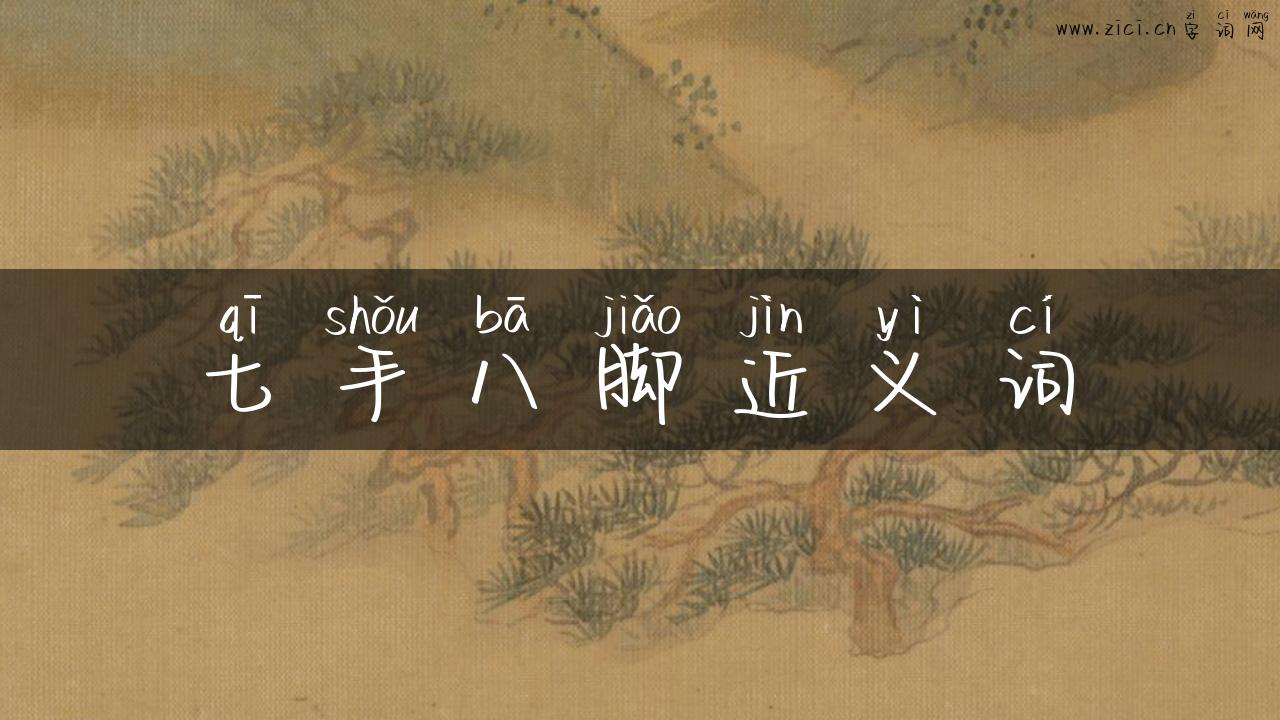 zì cí wǎng
www.zici.cn 字词网
qī shǒu bā jiǎo jìn yì cí
七手八脚近义词